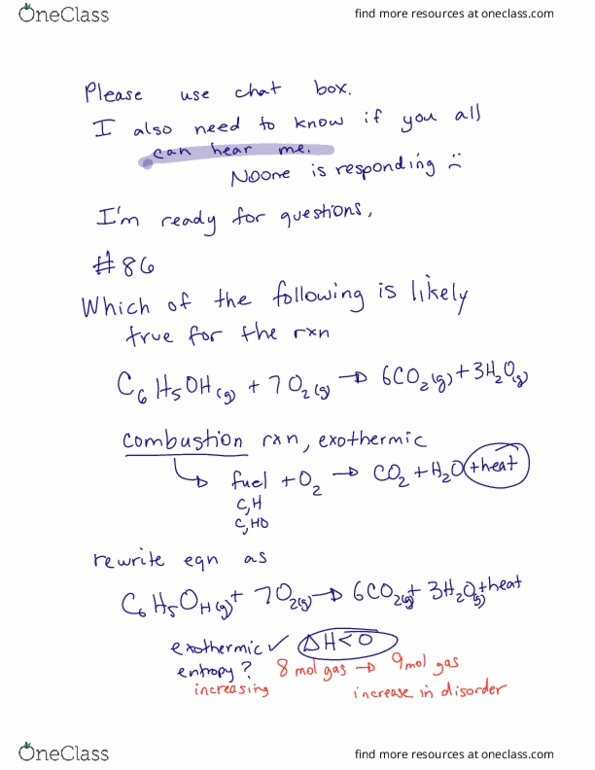 OneClass
find more resources at oneclass.com
Please use chat box.
I also need to know if you all
can hear me.
Noone is responding :(
I'm ready for questions,
#86
Which of the following is likely
true for the rxn
C₆H₅OH(g) + 7O₂(g) → 6CO₂(g) + 3H₂O(g)
combustion rxn, exothermic
fuel + O₂ → CO₂ + H₂O + heat
C,H
C,HO
rewrite eqn as
C₆H₅OH(g) + 7O₂(g) → 6CO₂(g) + 3H₂O(g) + heat
exothermic ✓ ΔH<0
entropy? 8 mol gas → 9 mol gas
increasing increase in disorder
OneClass
find more resources at oneclass.com